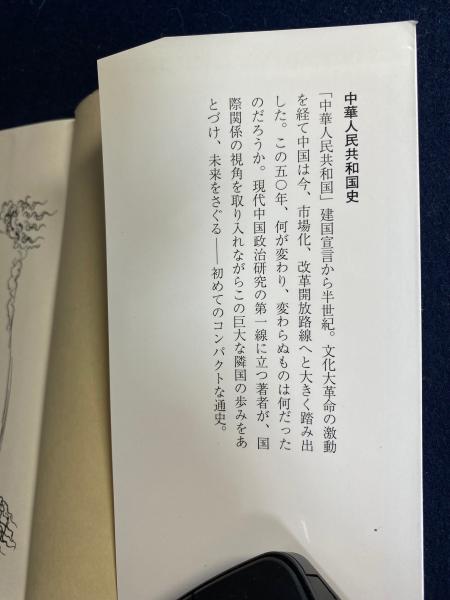 中華人民共和国史
「中華人民共和国」建国宣言から半世紀。文化大革命の激動
を経て中国は今、市場化、改革開放路線へと大きく踏み出
した。この五〇年、何が変わり、変わらぬものは何だった
のだろうか。現代中国政治研究の第一線に立つ著者が、国
際関係の視角を取り入れながらこの巨大な隣国の歩みをあ
とづけ、未来をさぐる——初めてのコンパクトな通史。